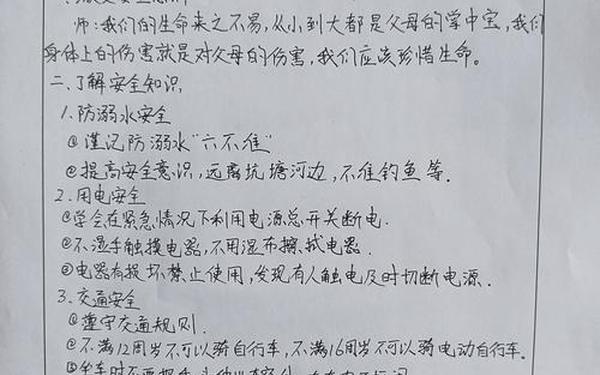 师:我们的生命来之不易,从小到大都是父母的掌中宝,我们
身体上的伤害就是对父母的伤害,我们应该珍惜生命。
二、了解安全知识
1.防溺水安全
①谨记防溺水“六不准”
②提高安全意识,远离坑塘河边,不准钓鱼等.
2.用电安全
①学会在紧急情况下利用电源总开关断电.
②不湿手触摸电器,不用湿布擦拭电器.
③电器有损坏禁止使用,发现有人触电及时切断电源.
3.交通安全
①遵守交通规则.
②不满12周岁不可以骑自行车,不满16周岁不可以骑电动自行车.